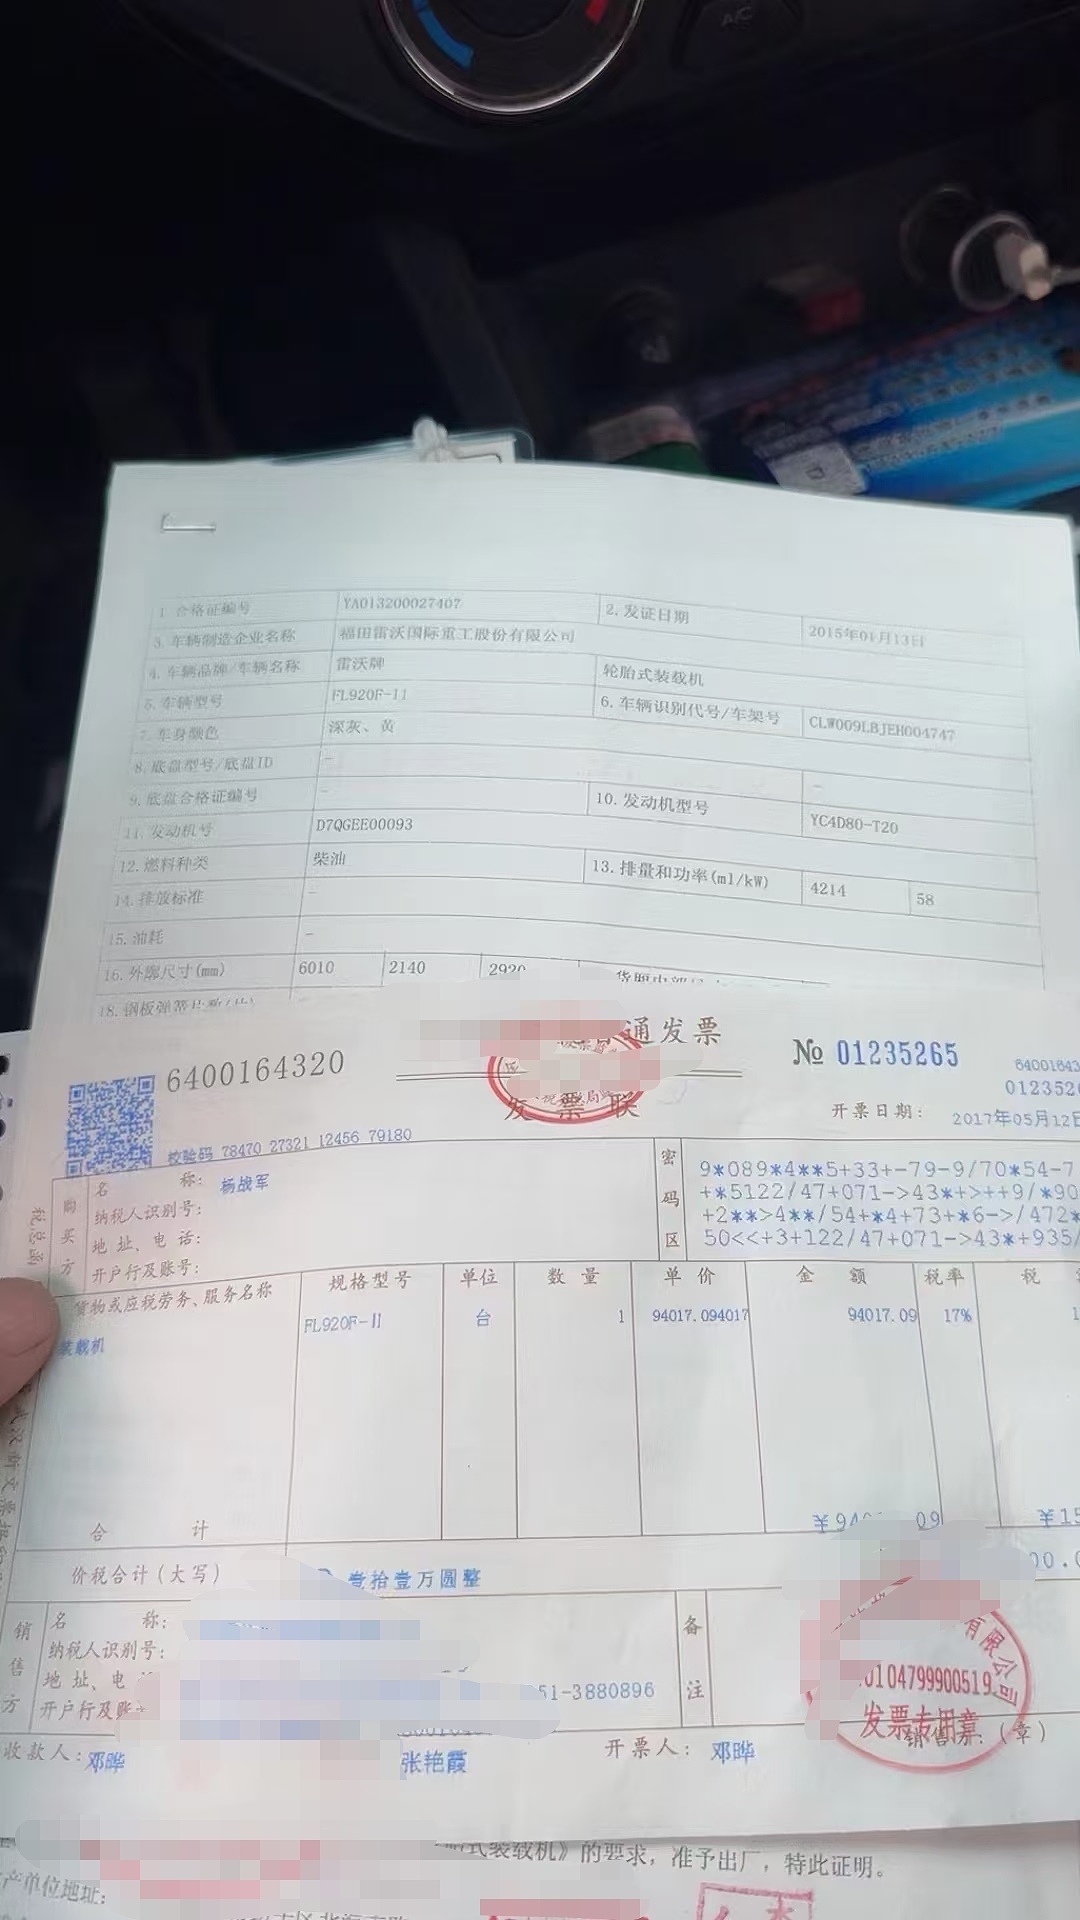 A/C
1. 合格证编号 YA013200027407 2. 发证日期 2015年01月13日
3. 车辆制造企业名称 福田雷沃国际重工股份有限公司
4. 车辆品牌/车辆名称 雷沃牌 轮胎式装载机
5. 车辆型号 FL920F-II 6. 车辆识别代号/车架号 CLW009LBJEH004747
7. 车身颜色 深灰、黄
8. 底盘型号/底盘ID - -
9. 底盘合格证编号 - 10. 发动机型号 YC4D80-T20
11. 发动机号 D7QGEE00093
12. 燃料种类 柴油 13. 排量和功率(ml/kW) 4214 58
14. 排放标准 -
15. 油耗 -
16. 外廓尺寸(mm) 6010 2140 2920
18. 钢板弹簧片数(片)
6400164320 通发票 № 01235265
发票联
开票日期: 2017年05月12日
校验码 78470 27321 12456 79180
购买方
名 称: 杨战军
纳税人识别号:
地 址、电 话:
开户行及账号:
密码区
9*089*4**5+33+-79-9/70*54-7
+*5122/47+071->43*+>++9/*90
+2**>4**/54+*4+73+*6->/472*
50<<+3+122/47+071->43*+935/
货物或应税劳务、服务名称 规格型号 单位 数 量 单 价 金 额 税率 税
装载机 FL920F-II 台 1 94017.094017 94017.09 17% 1
合 计 ¥94 09 ¥15
价税合计(大写) 壹拾壹万圆整 00.0
销售方
名 称:
纳税人识别号:
地 址、电
开户行及账
51-3880896
备注
有限公司
0104799900519
发票专用章
收款人: 邓晔 张艳霞 开票人: 邓晔 销售方: (章)
式装载机》的要求，准予出厂，特此证明。
产单位地址: